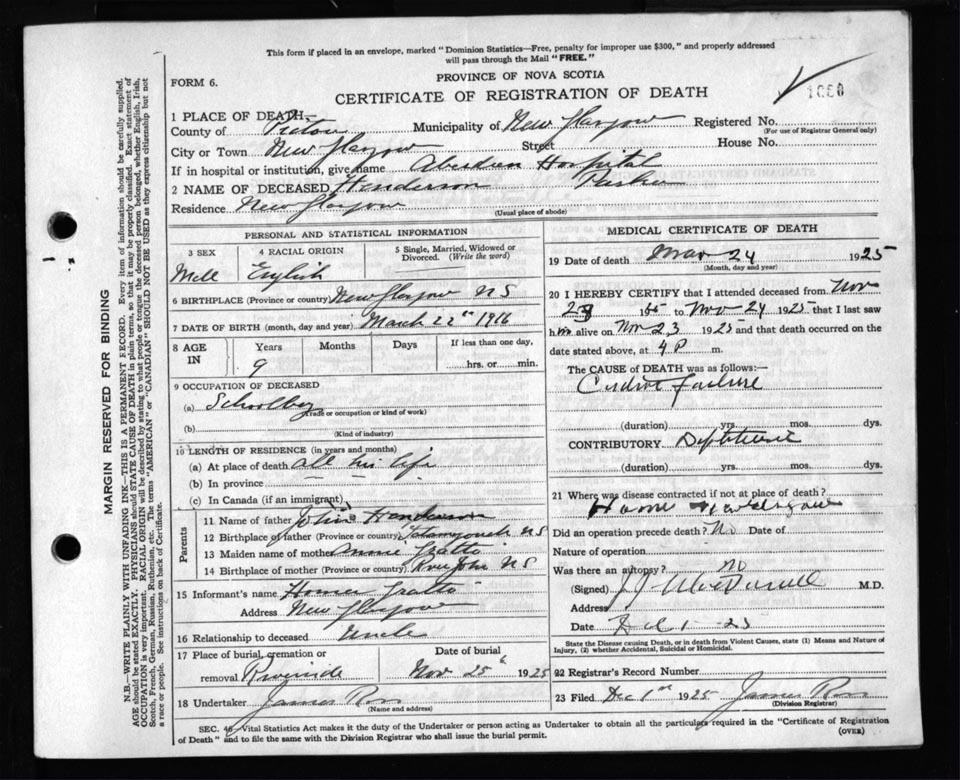 This form if placed in an envelope, marked "Dominion Statistics—Free, penalty for improper use $300," and properly addressed
will pass through the Mail "FREE."
PROVINCE OF NOVA SCOTIA
FORM 6.
CERTIFICATE OF REGISTRATION OF DEATH
1 PLACE OF DEATH—
County of Pictou Municipality of New Glasgow Registered No.
(For use of Registrar General only)
City or Town New Glasgow Street House No.
If in hospital or institution, give name Aberdeen Hospital
2 NAME OF DECEASED Henderson
Residence New Glasgow
(Usual place of abode)
PERSONAL AND STATISTICAL INFORMATION
3 SEX 4 RACIAL ORIGIN 5 Single, Married, Widowed or Divorced. (Write the word)
English
6 BIRTHPLACE (Province or country) New Glasgow NS
7 DATE OF BIRTH (month, day and year) March 22nd 1916
8 AGE IN Years Months Days If less than one day,
9 hrs. or min.
9 OCCUPATION OF DECEASED
(a) Schoolboy
(Trade or occupation or kind of work)
(b)
(Kind of industry)
10 LENGTH OF RESIDENCE (in years and months)
(a) At place of death all his life
(b) In province
(c) In Canada (if an immigrant)
Parents
11 Name of father John Henderson
12 Birthplace of father (Province or country) NS
13 Maiden name of mother Annie Gratto
14 Birthplace of mother (Province or country) River John NS
15 Informant's name Homer Gratto
Address New Glasgow
16 Relationship to deceased Uncle
17 Place of burial, cremation or Date of burial
removal Riverside Nov 25th 1925
18 Undertaker James Ross
(Name and address)
MEDICAL CERTIFICATE OF DEATH
19 Date of death 24 1925
(Month, day and year)
20 I HEREBY CERTIFY that I attended deceased from Nov
to Nov 24 1925 that I last saw
him alive on Nov 23 1925 and that death occurred on the
date stated above, at 4 P m.
The CAUSE OF DEATH was as follows:—
Cardiac failure
(duration) yrs. mos. dys.
CONTRIBUTORY
(duration) yrs. mos. dys.
21 Where was disease contracted if not at place of death?
Home New Glasgow
Did an operation precede death? No Date of
Nature of operation
Was there an autopsy? no
(Signed) M.D.
Address
Date Dec 1 - 25
State the Disease causing Death, or in death from Violent Causes, state (1) Means and Nature of
Injury, (2) whether Accidental, Suicidal or Homicidal.
22 Registrar's Record Number
23 Filed Dec 1st 1925 James Ross
(Division Registrar)
SEC. Vital Statistics Act makes it the duty of the Undertaker or person acting as Undertaker to obtain all the particulars required in the "Certificate of Registration
of Death" and to file the same with the Division Registrar who shall issue the burial permit.
(OVER)
MARGIN RESERVED FOR BINDING
N.B.—WRITE PLAINLY WITH UNFADING INK—THIS IS A PERMANENT RECORD. Every item of information should be carefully supplied.
AGE should be stated EXACTLY. PHYSICIANS should STATE CAUSE OF DEATH in plain terms, so that it may be properly classified. Exact statement of
OCCUPATION is very important. RACIAL ORIGIN will be described by stating to what people or tongue the deceased person belonged, whether English, Irish,
Scotch, French, German, Russian, Ruthenian, etc. The terms "AMERICAN" or "CANADIAN" SHOULD NOT BE USED as they express citizenship but not
a race or people. See instructions on back of Certificate.